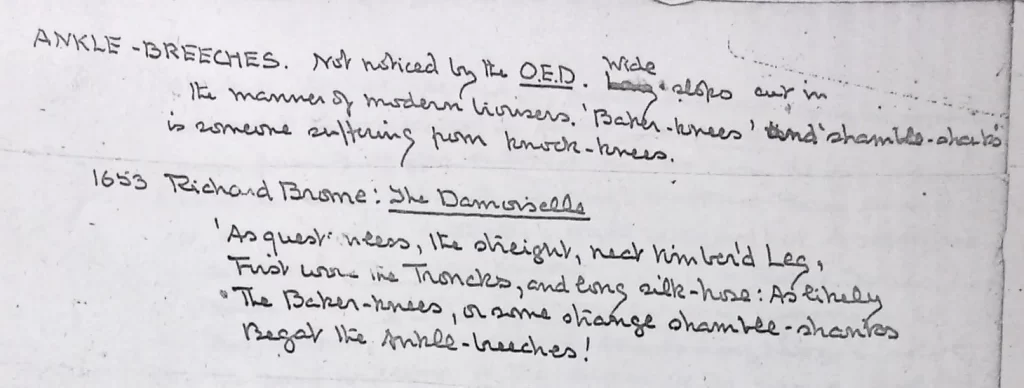 ANKLE-BREECHES. Not noticed by the O.E.D. Wide slops cut in
the manner of modern trousers. 'Baker-knees' and 'shamble-shanks'
is someone suffering from knock-knees.
1653 Richard Brome: The Damoiselle
'As questionless, the streight, neat timber'd Leg,
First wore the Troncks, and long silk-hose: As likely
The Baker-knees, or some strange shamble-shanks
Begat the Ankle-breeches!